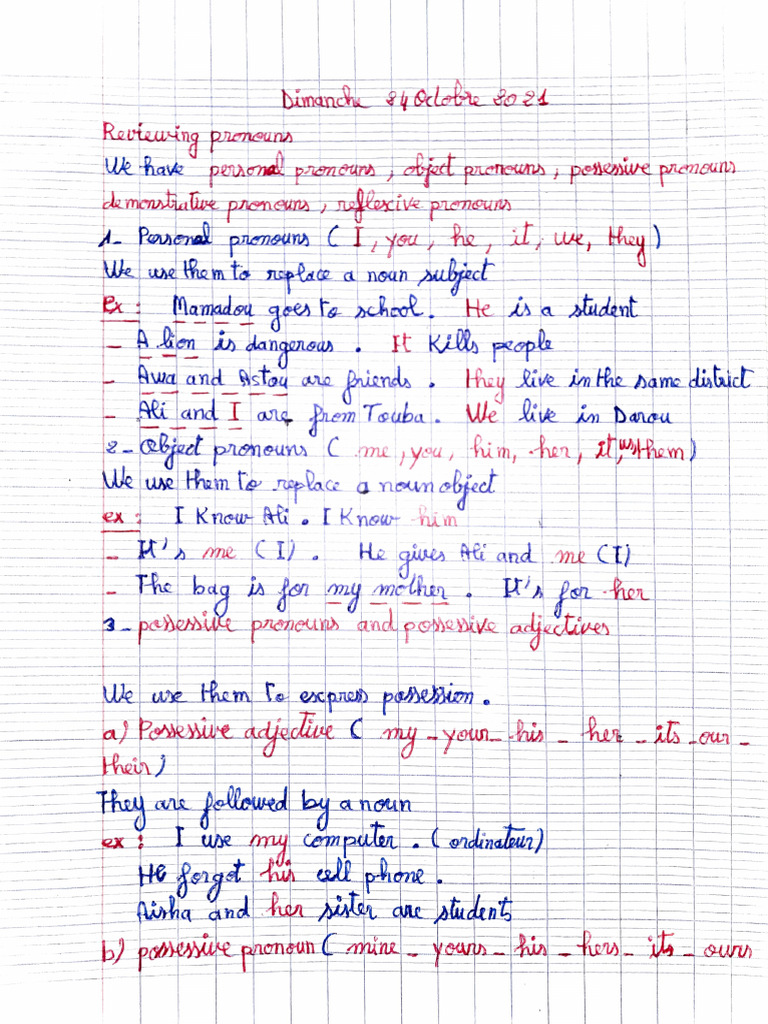 Dimanche 24 Octobre 2021
Reviewing pronouns
We have personal pronouns, object pronouns, possessive pronouns
demonstrative pronouns, reflexive pronouns
1- Personal pronouns ( I, you, he, it, we, they)
We use them to replace a noun subject
Ex : Mamadou goes to school. He is a student
- A lion is dangerous. It Kills people
- Awa and Astou are friends. they live in the same district
- Ali and I are from Touba. We live in Darou
2- Object pronouns ( me, you, him, her, it, us, them)
We use them to replace a noun object
ex : I Know Ali. I Know him
- It's me (I). He gives Ali and me (I)
- The bag is for my mother. It's for her
3- possessive pronouns and possessive adjectives
We use them to express possession.
a) Possessive adjective ( my - your - his - her - its - our -
their)
They are followed by a noun
ex : I use my computer. (ordinateur)
He forgot his cell phone.
Aisha and her sister are students
b) possessive pronoun ( mine - yours - his - hers - its - ours